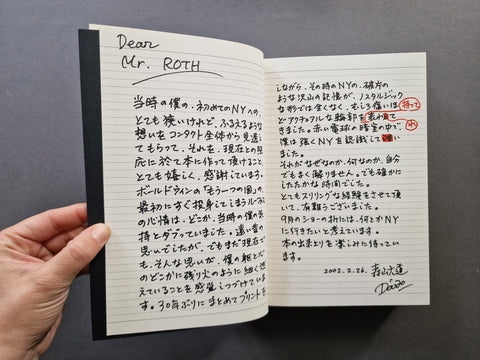 Dear
Mr. ROTH
当時の僕の、初めてのNYへの、
とても狭いけれど、ふるえるような
想いをコンタクト全体から見透し
てもらって、それを、現在との照
応に於て本に作って頂けること、
とても嬉しく、感謝しています。
ボールドウィンの「もう一つの国」の、
最初にすぐ投身してしまうルーファス
の心情は、どこか、当時の僕の気
持とダブっていました。遠い昔の
思いでしたが、でもまだ現在で
も、そんな思いが、僕の相と心
のどこかに残り火のように細く燃
えていることを感覚しつづけていま
す。30年ぶりにまとめてプリントを
しながら、その時のNYの、破片の
ような沢山の記憶が、ノスタルジック
な形では全くなく、むしろ痛いほ
どアクチュアルな輪郭を持って
きました。赤い電球の暗室の中で、
僕は強くNYを認識して
ました。
それがなぜなのか、何なのか、自分
でもよく解りません。でも確かに
したたかな時間でした。
とてもスリリングな経験をさせて頂
いて、有難うございました。
9月のショーの折には、何とかNY
に行きたいと考えています。
本の出来上りを楽しみに待ってい
ます。
2002.2.26. 森山大道
Daido